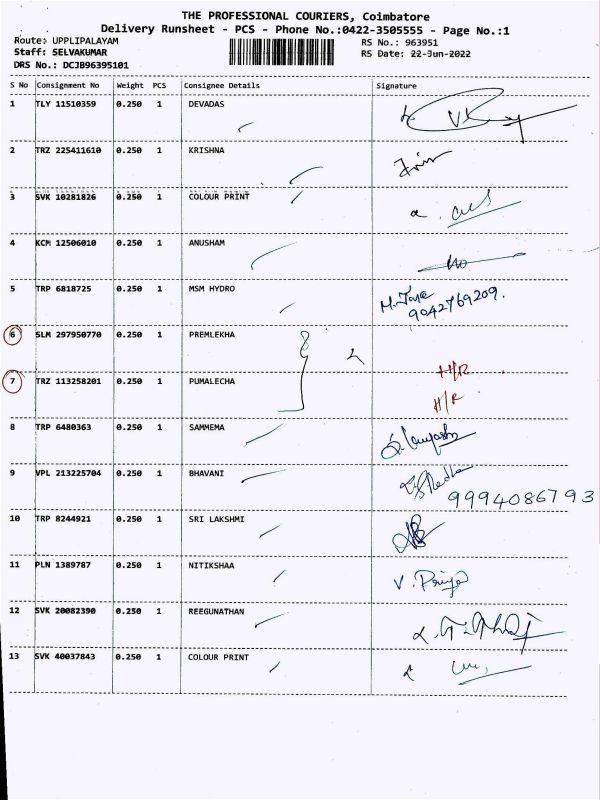 THE PROFESSIONAL COURIERS, Coimbatore
Delivery Runsheet - PCS - Phone No.:0422-3505555 - Page No.:1
Route: UPPLIPALAYAM RS No.: 963951
Staff: SELVAKUMAR RS Date: 22-Jun-2022
DRS No.: DCJB96395101
S No Consignment No Weight PCS Consignee Details Signature
1 TLY 11510359 0.250 1 DEVADAS
2 TRZ 225411610 0.250 1 KRISHNA
3 SVK 10281826 0.250 1 COLOUR PRINT
4 KCM 12506010 0.250 1 ANUSHAM
5 TRP 6818725 0.250 1 MSM HYDRO
9042769209.
6 SLM 297950770 0.250 1 PREMLEKHA
H/R
7 TRZ 113258201 0.250 1 PUMALECHA
H/R
8 TRP 6480363 0.250 1 SAMMEMA
9 VPL 213225704 0.250 1 BHAVANI
9994086793
10 TRP 8244921 0.250 1 SRI LAKSHMI
11 PLN 1389787 0.250 1 NITIKSHAA
V. Priya
12 SVK 20082390 0.250 1 REEGUNATHAN
13 SVK 40037843 0.250 1 COLOUR PRINT